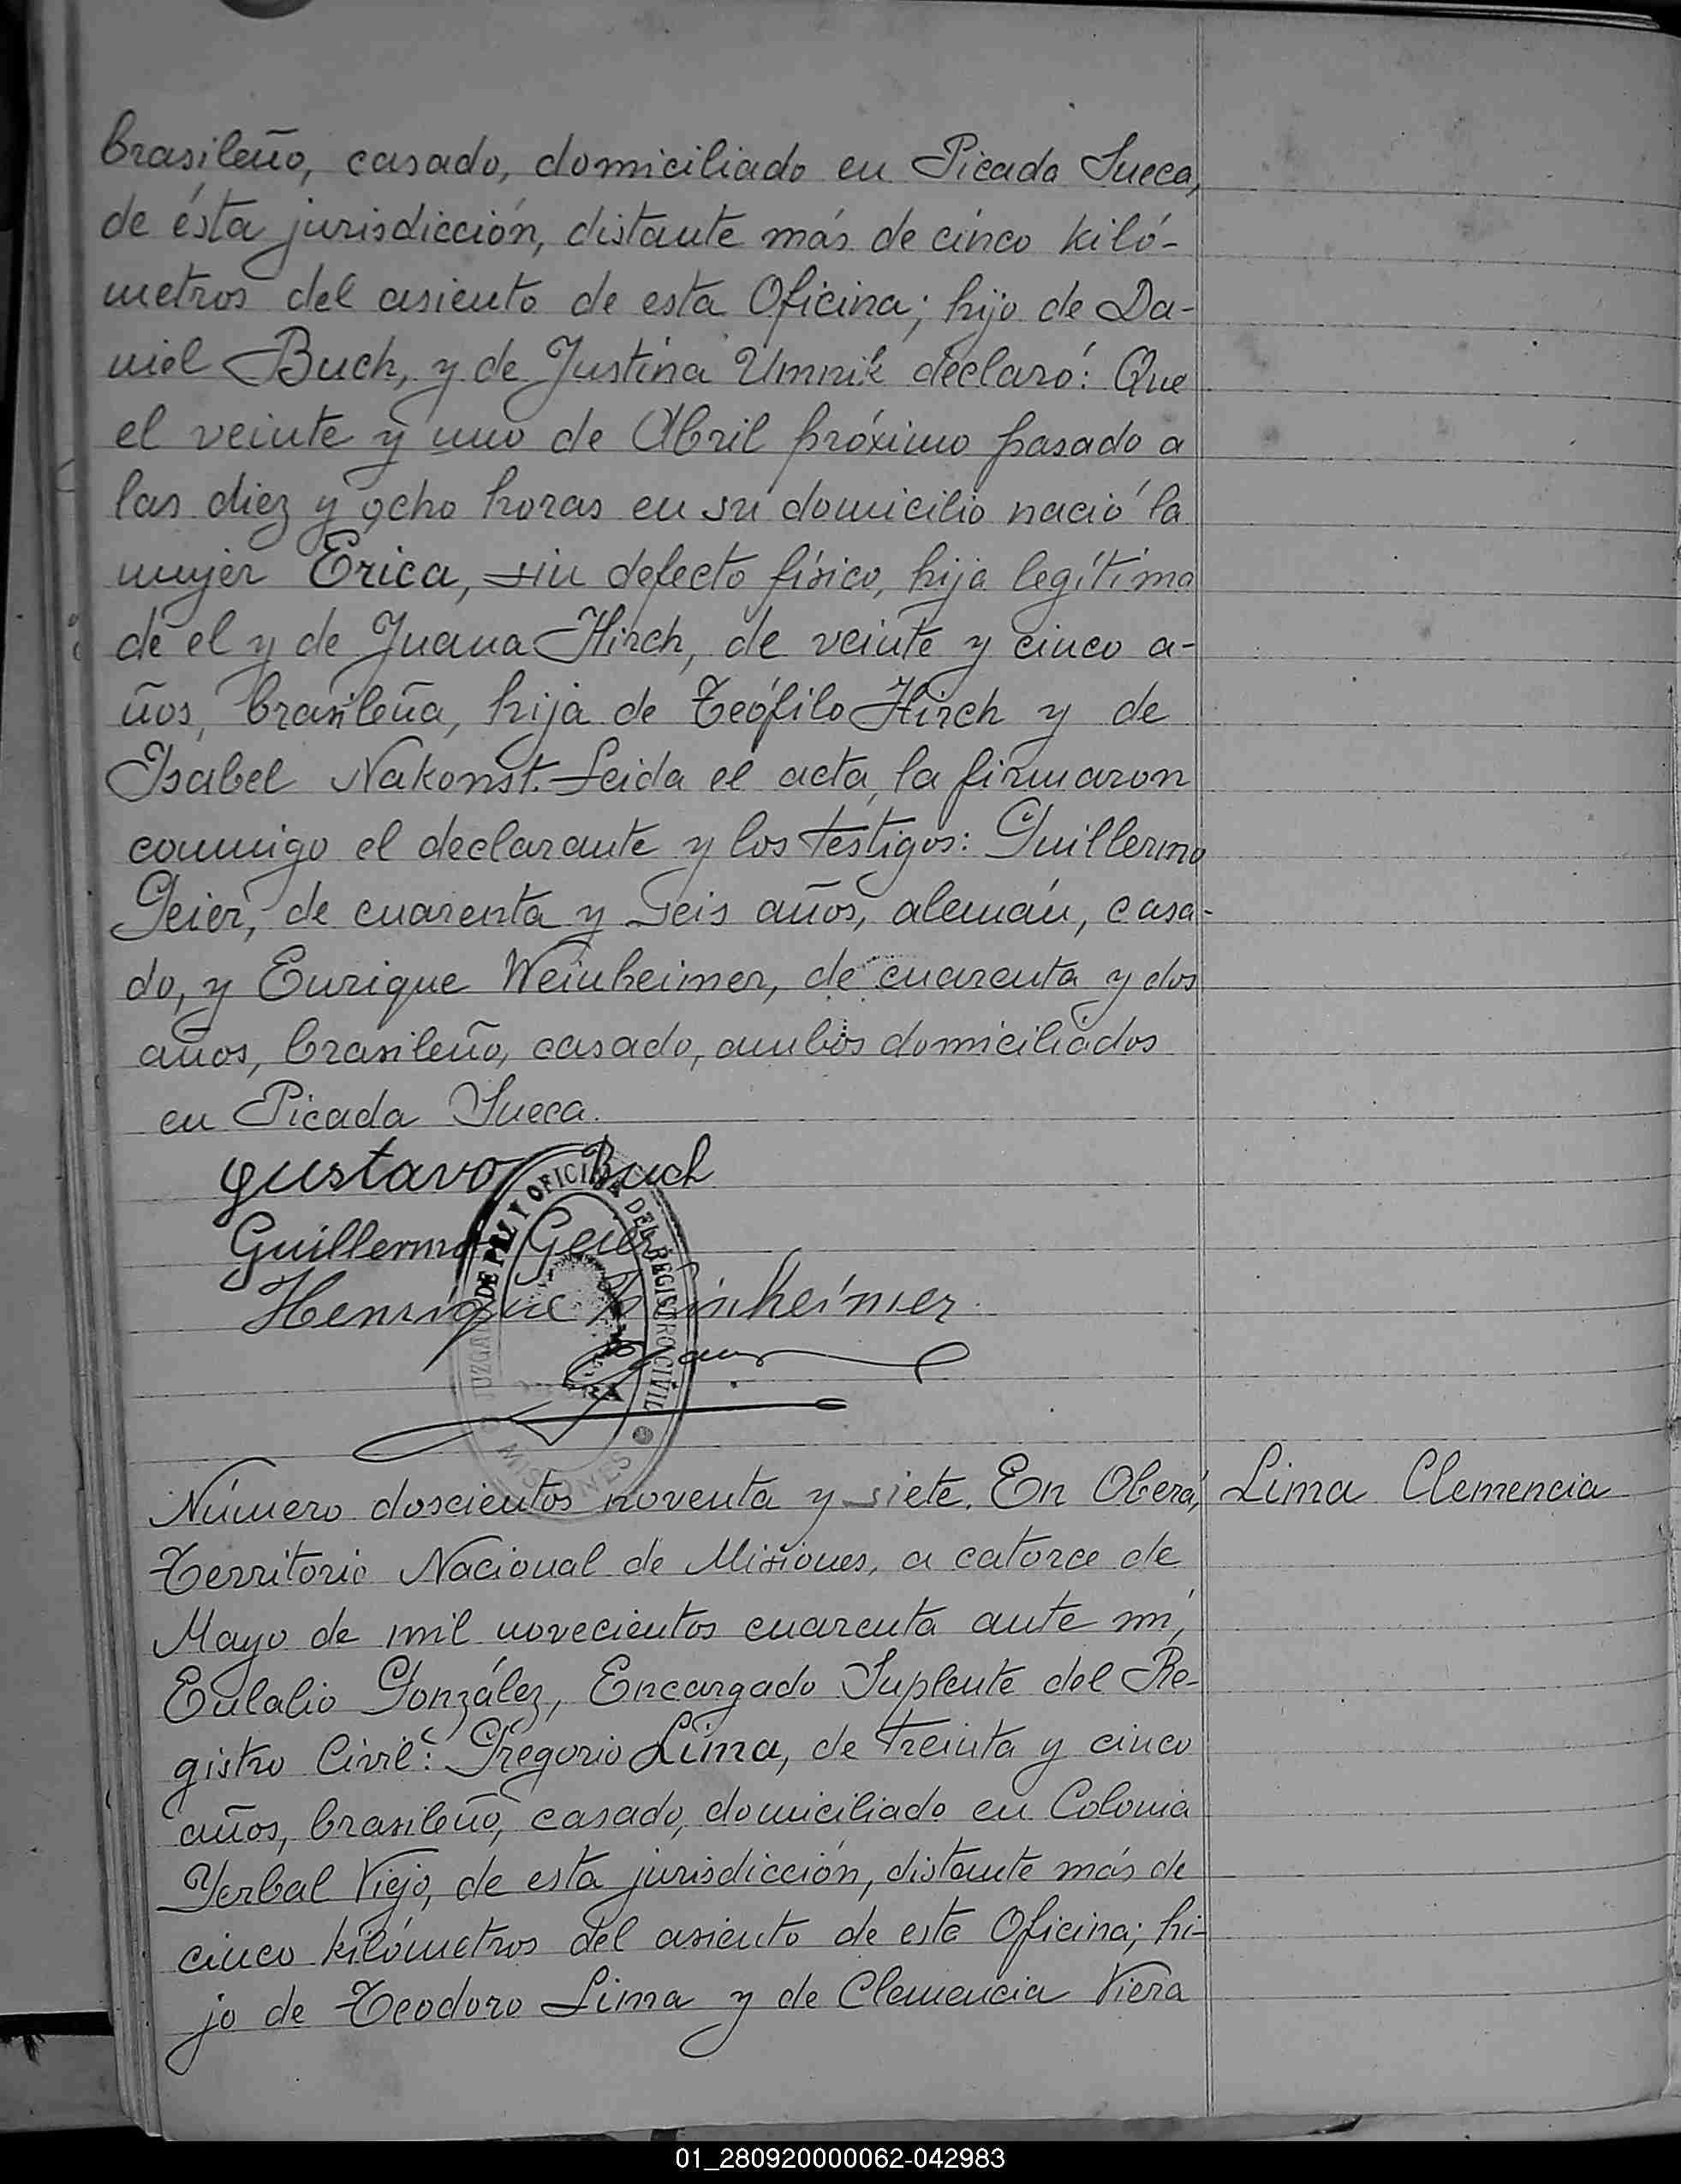 brasileño, casado, domiciliado en Picada Sueca,
de ésta jurisdicción, distante más de cinco kiló-
metros del asiento de esta Oficina; hijo de Da-
niel Buch, y de Justina Umnik declaró: Que
el veinte y uno de Abril próximo pasado a
las diez y ocho horas en su domicilio nació la
mujer Erica, sin defecto físico, hija legítima
de el y de Juana Hirch, de veinte y cinco a-
ños, brasileña, hija de Teófilo Hirch y de
Isabel Nakonst. Leida el acta, la firmaron
conmigo el declarante y los testigos: Guillermo
Geier, de cuarenta y seis años, alemán, casa-
do, y Enrique Weinheimer, de cuarenta y dos
años, brasileño, casado, ambos domiciliados
en Picada Sueca.
Gustavo Buch
Guillermo Geier
Henrique Weinheimer
JUZGADO DE PAZ Y OFICINA DEL REGISTRO CIVIL
MISIONES
Número doscientos noventa y siete. En Oberá, Lima Clemencia
Territorio Nacional de Misiones, a catorce de
Mayo de mil novecientos cuarenta ante mí,
Eulalio González, Encargado Suplente del Re-
gistro Civil: Gregorio Lima, de treinta y cinco
años, brasileño, casado, domiciliado en Colonia
Yerbal Viejo, de esta jurisdicción, distante más de
cinco kilómetros del asiento de esta Oficina; hi-
jo de Teodoro Lima y de Clemencia Viera
01_280920000062-042983